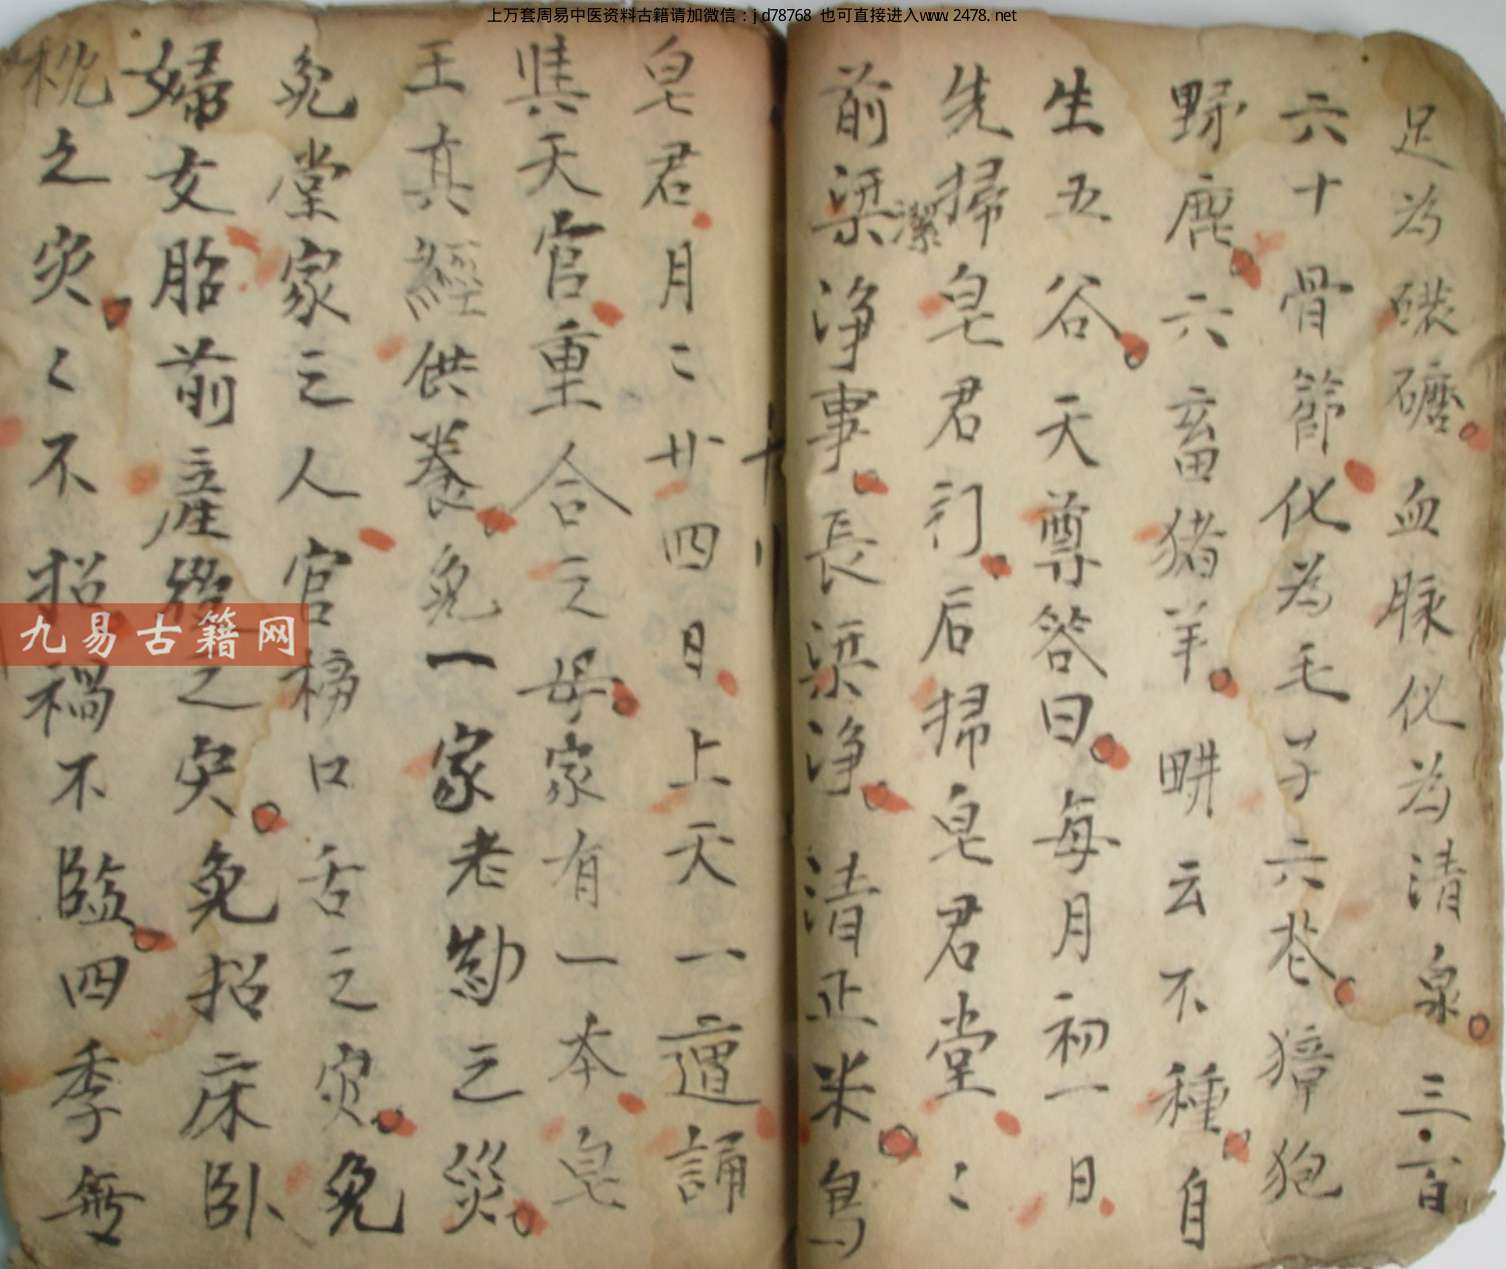 上万套周易中医资料古籍请加微信：jd78768 也可直接进入www.2478.net
足為磙磨血脉化為清泉三百
六十骨節化為毛子六苍獐狍
野鹿六畜猪羊畊云不種自
生五谷天尊答曰每月初一日
先掃皂君门后掃皂君堂〻
前梁潔净事長梁净清正米鳥
皂君月〻廿四日上天一遭誦
其天官重合之母家有一本皂
王真經供養免一家老勸之災
免堂家之人官移口舌之灾免
婦女胎前產後之灾免招床卧
枕之灾〻不招禍不臨四季無
九易古籍网